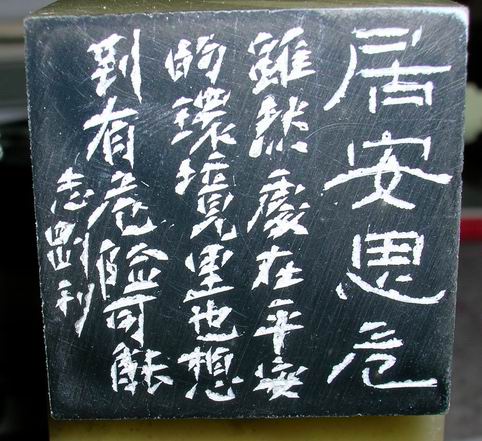 居安思危
雖然處在平安
的環境里也想
到有危險可能
志剛刊